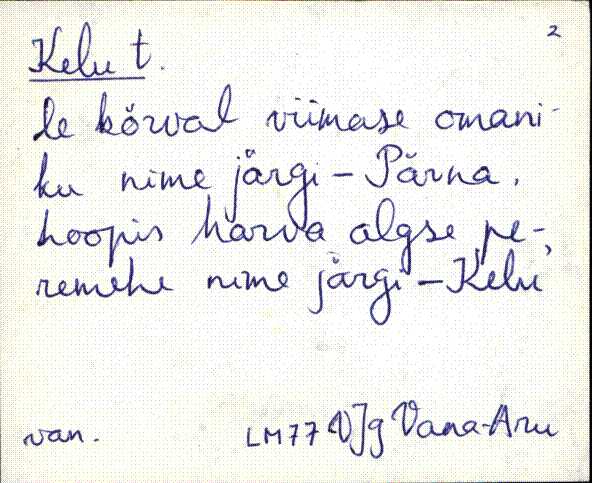 2
Kelu t.
le kõrval viimase omani-
ku nime järgi - Pärna,
hoopis harva algse pe-
remehe nime järgi - Kelu
van. LM77 VJg Vana-Aru